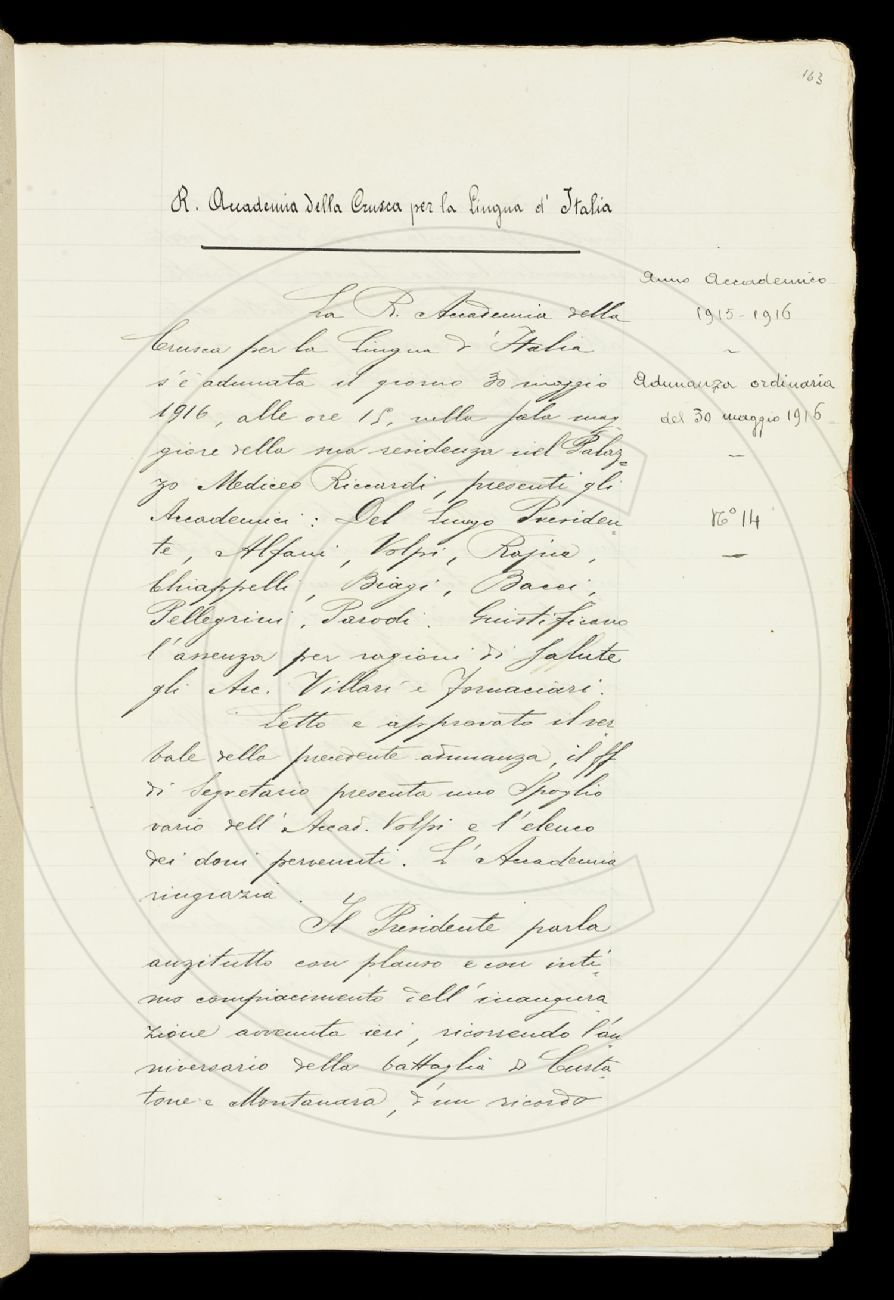 163
R. Accademia della Crusca per la Lingua d'Italia
Anno Accademico
1915-1916
~
Adunanza ordinaria
del 30 maggio 1916
~
N° 14
~
La R. Accademia della
Crusca per la Lingua d'Italia
s'è adunata il giorno 30 maggio
1916, alle ore 15, nella sala mag
giore della sua residenza nel Palaz=
zo Mediceo Riccardi, presenti gli
Accademici: Del Lungo Presiden
te, Alfani, Volpi, Rajna,
Chiappelli, Biagi, Bacci,
Pellegrini, Parodi. Giustificano
l'assenza per ragioni di salute
gli Acc. Villari e Fornaciari.
Letto e approvato il ver
bale della precedente adunanza, il ff
di Segretario presenta uno Spoglio
vario dell'Accad. Volpi e l'elenco
dei doni pervenuti. L'Accademia
ringrazia.
Il Presidente parla
anzitutto con plauso e con inti-
mo compiacimento dell'inaugura
zione avvenuta ieri, ricorrendo l'an
niversario della battaglia di Curta
tone e Montanara, d'un ricordo